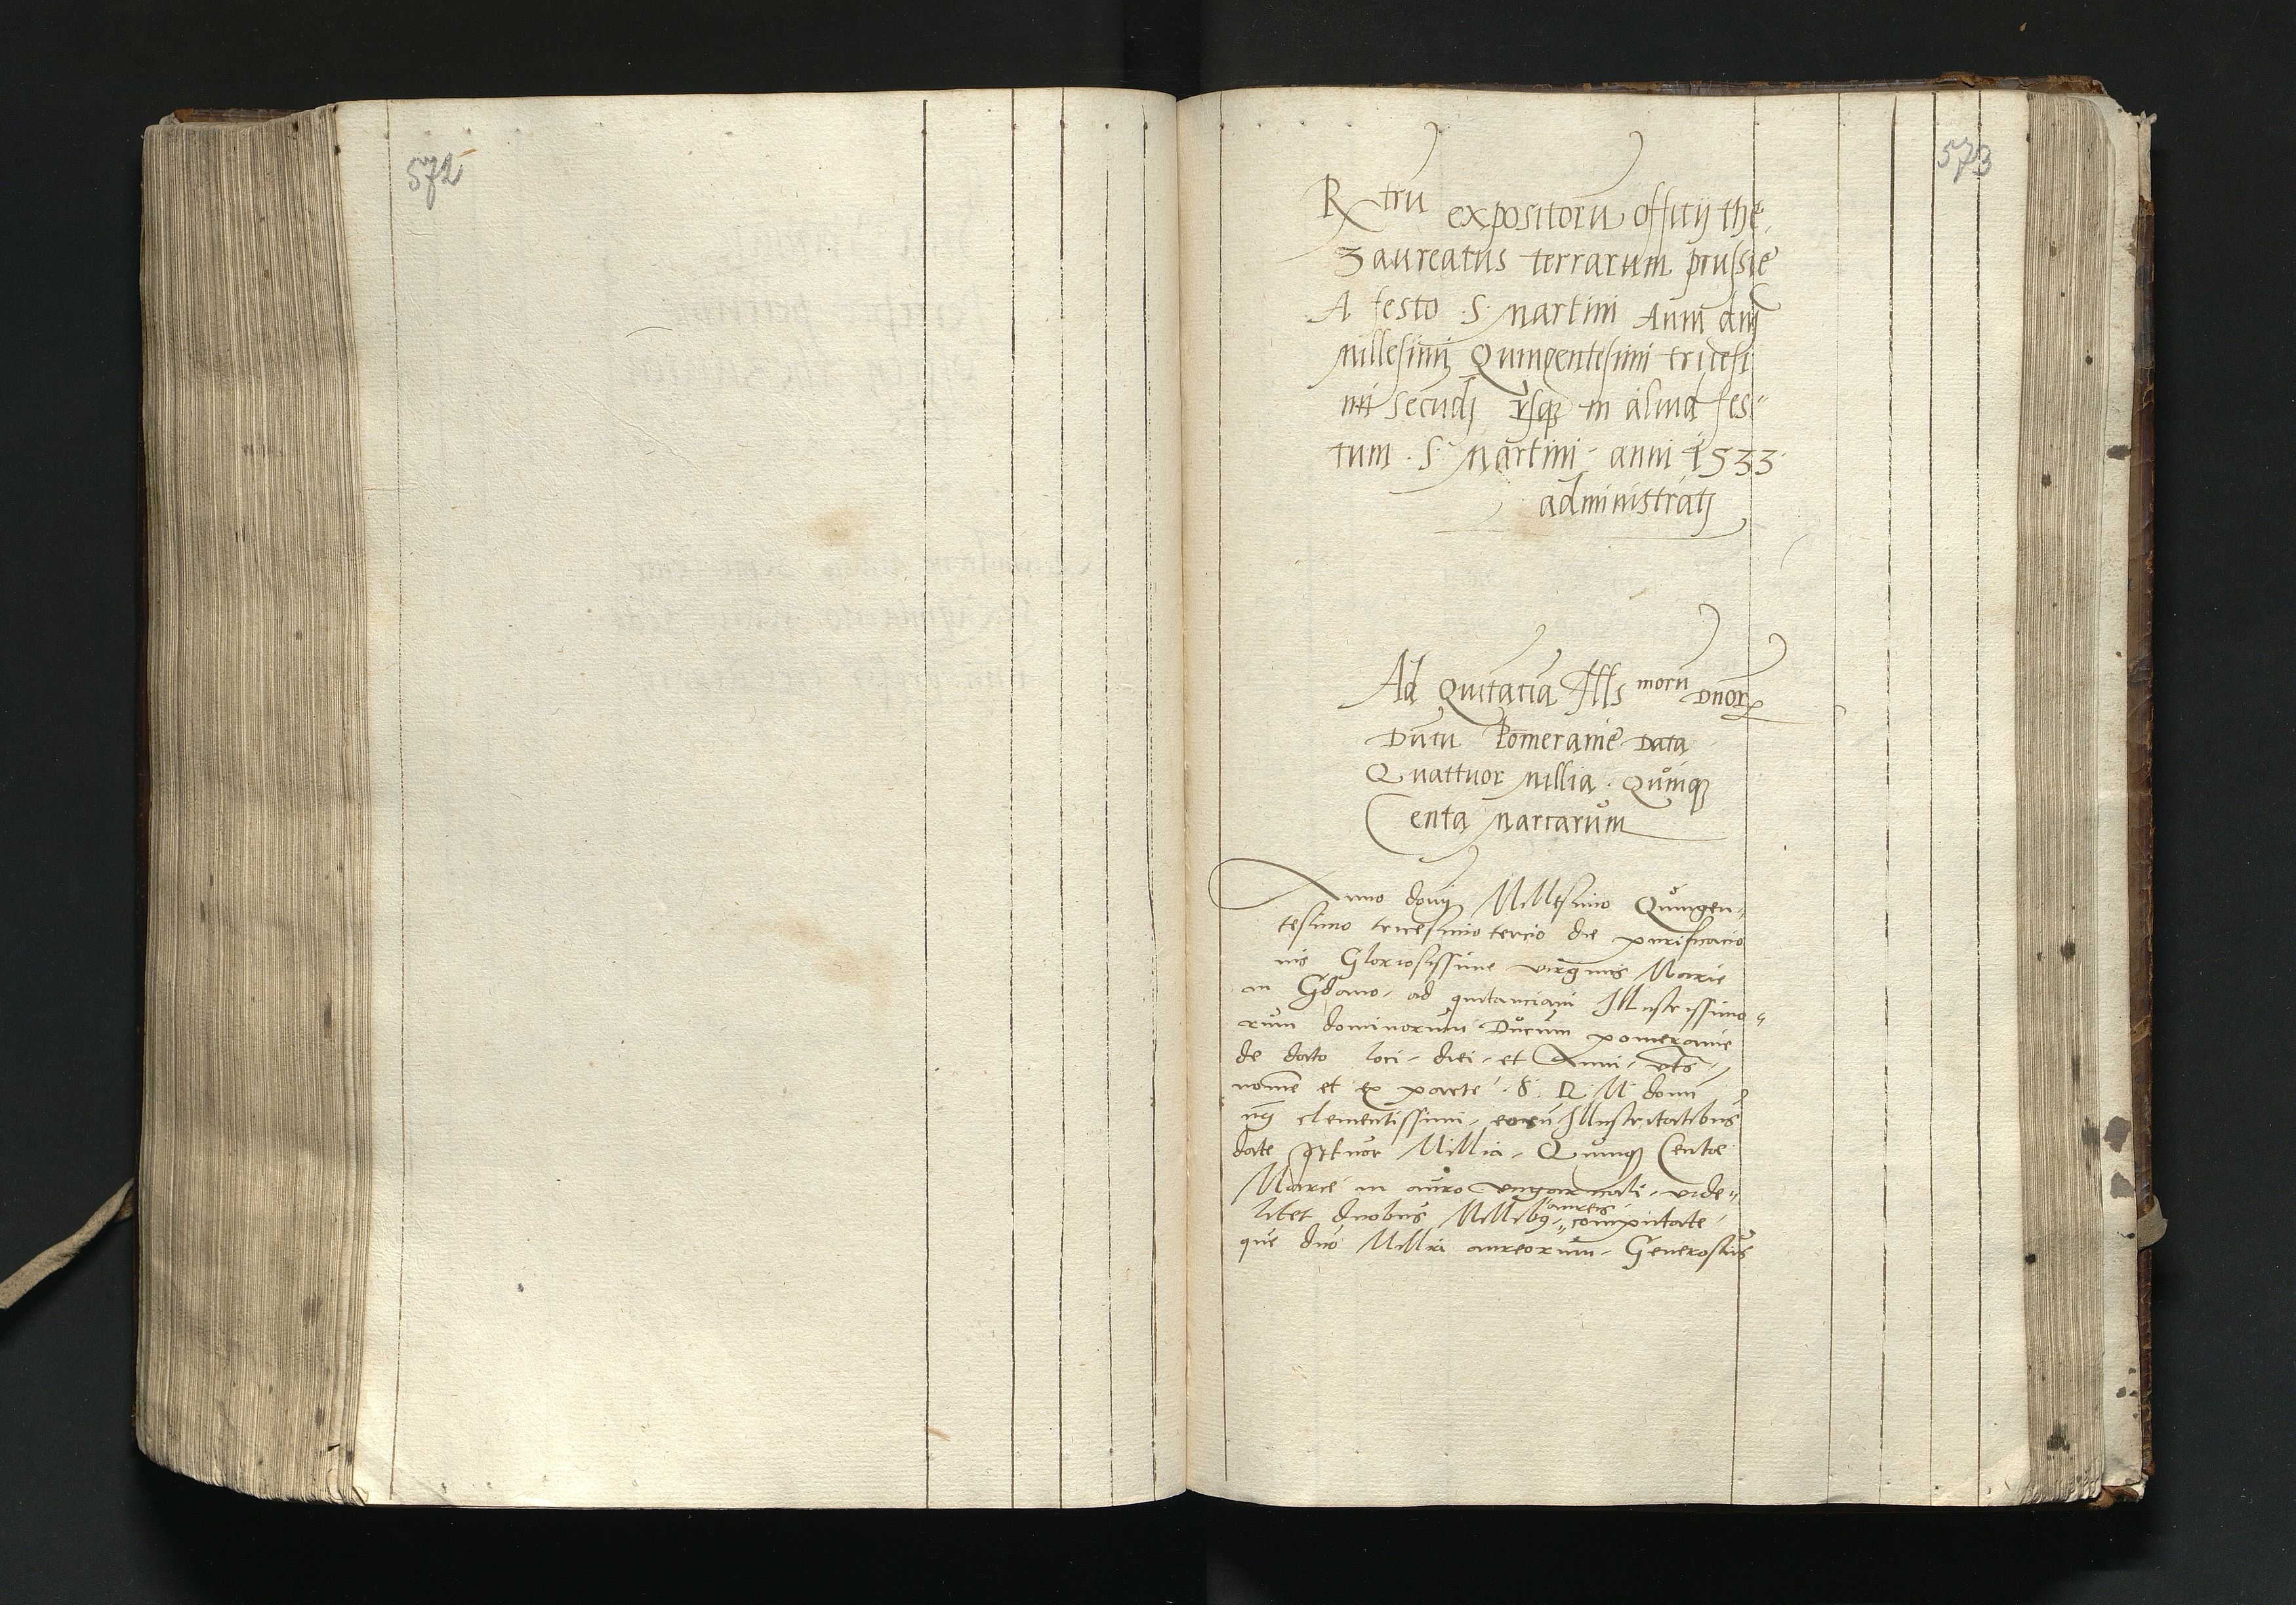 572
573
Rxtrū expositorū offitij the
zaureatus terrarum prussie
A festo S. Martini Anni dnj
Millesimi Quingentesimi tricesi
mi secūdj vsq̨ in aliud fes-
tum S. Martini anni 1533
administratj
Ad Quitatiā Ills morū Dnorꝝ
Dūcū Pomeranie Data
Quattuor Millia Quinq̨
Centa Marcarum
Anno domj Millesimo Quingen-
tesimo tricesimo tercio die purificacio
nis Gloriosissime virginis Marie
in Gdano ad quitanciam Illustrissimo-
rum dominorum Ducum pomeranie
de dato loci diei et Anni vts
nomē et ex parte S. R. M. domi
nj clementissimi eorū Illustritatibus
date qttuor Millia Quinq̨ Centae
Marce in auro vngaricali vide-
licet duobus Millibꝰ aureis computate
que duo Millia aureorum Generosus